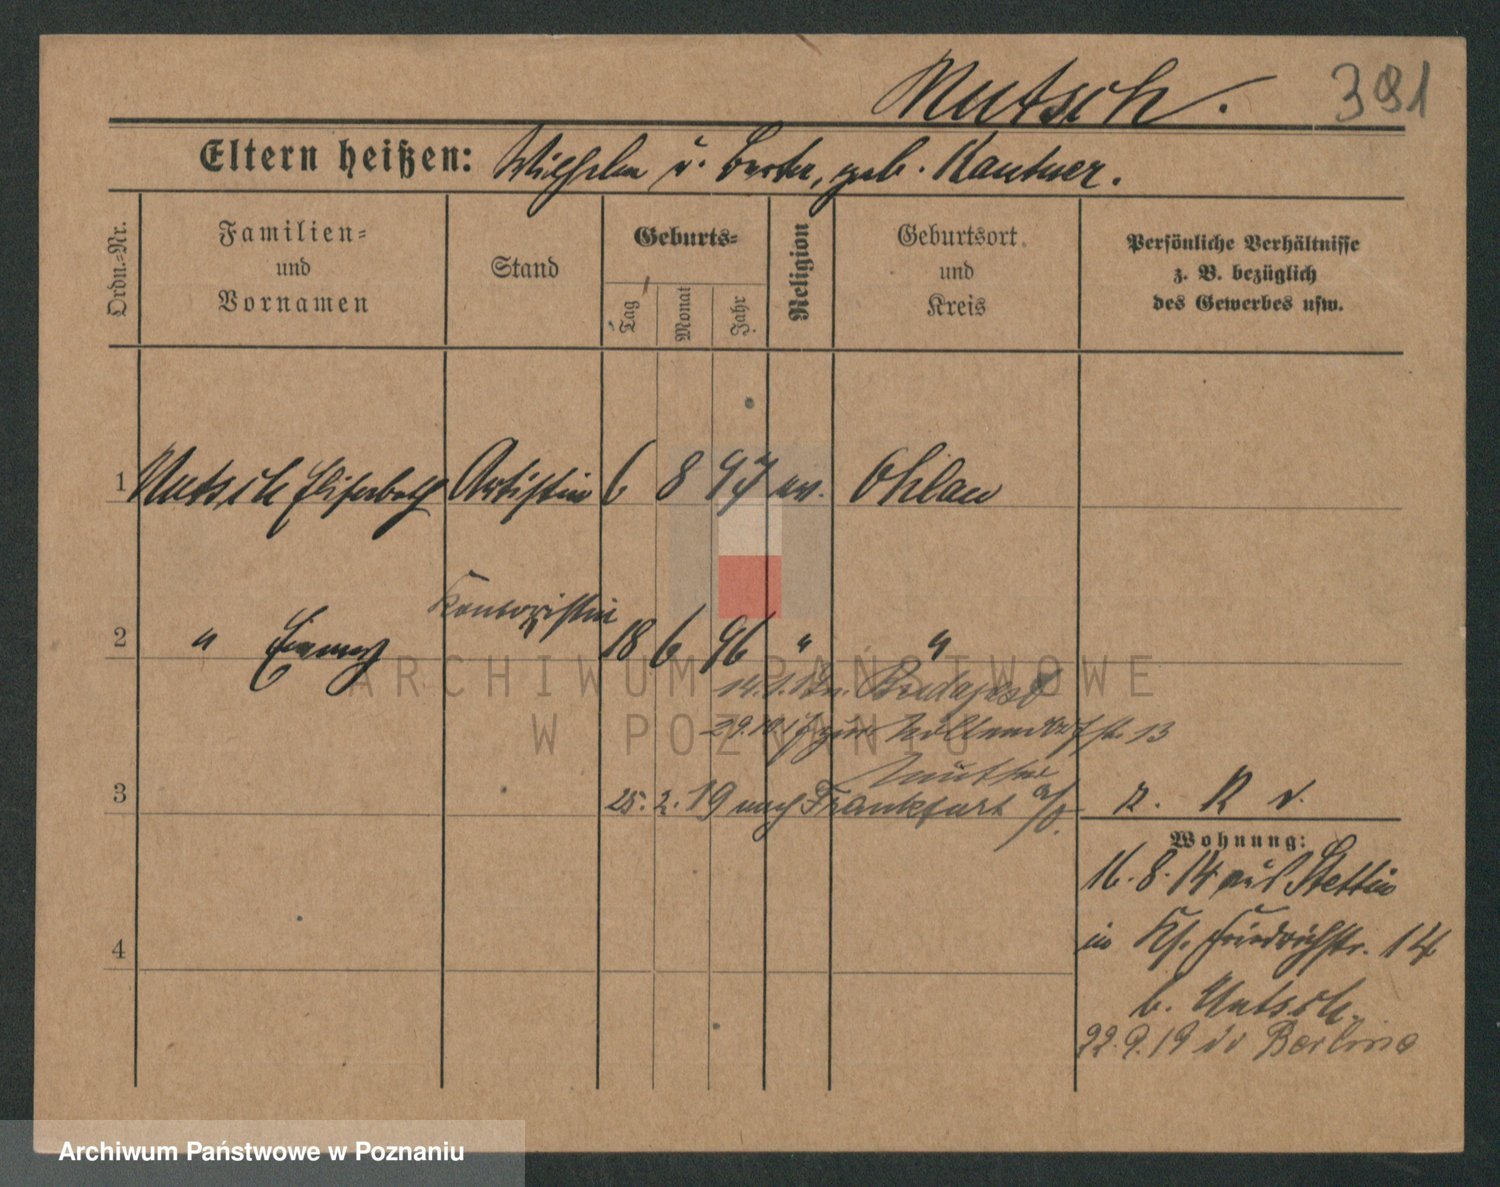 Mutsch. 381
Eltern heißen: Wilhelm u. Berta, geb. Kantner.
Ordn.-Nr.
Familien-
und
Vornamen
Stand
Geburts-
Tag
Monat
Jahr
Religion
Geburtsort
und
Kreis
Persönliche Verhältnisse
z. B. bezüglich
des Gewerbes usw.
1 Mutsch Elisabeth Artistin 6 8 97 ev. Ohlau
2 " Emmy Kontoristin 18 6 96 " "
ARCHIWUM PAŃSTWOWE
W POZNANIU
Budapest
13
3 25. 2. 19 nach Frankfurt a/O.
Wohnung:
16. 8. 14 aus Stettin
in Friedrichstr. 14
b. Mutsch.
22. 9. 19 Berlin
4
Archiwum Państwowe w Poznaniu